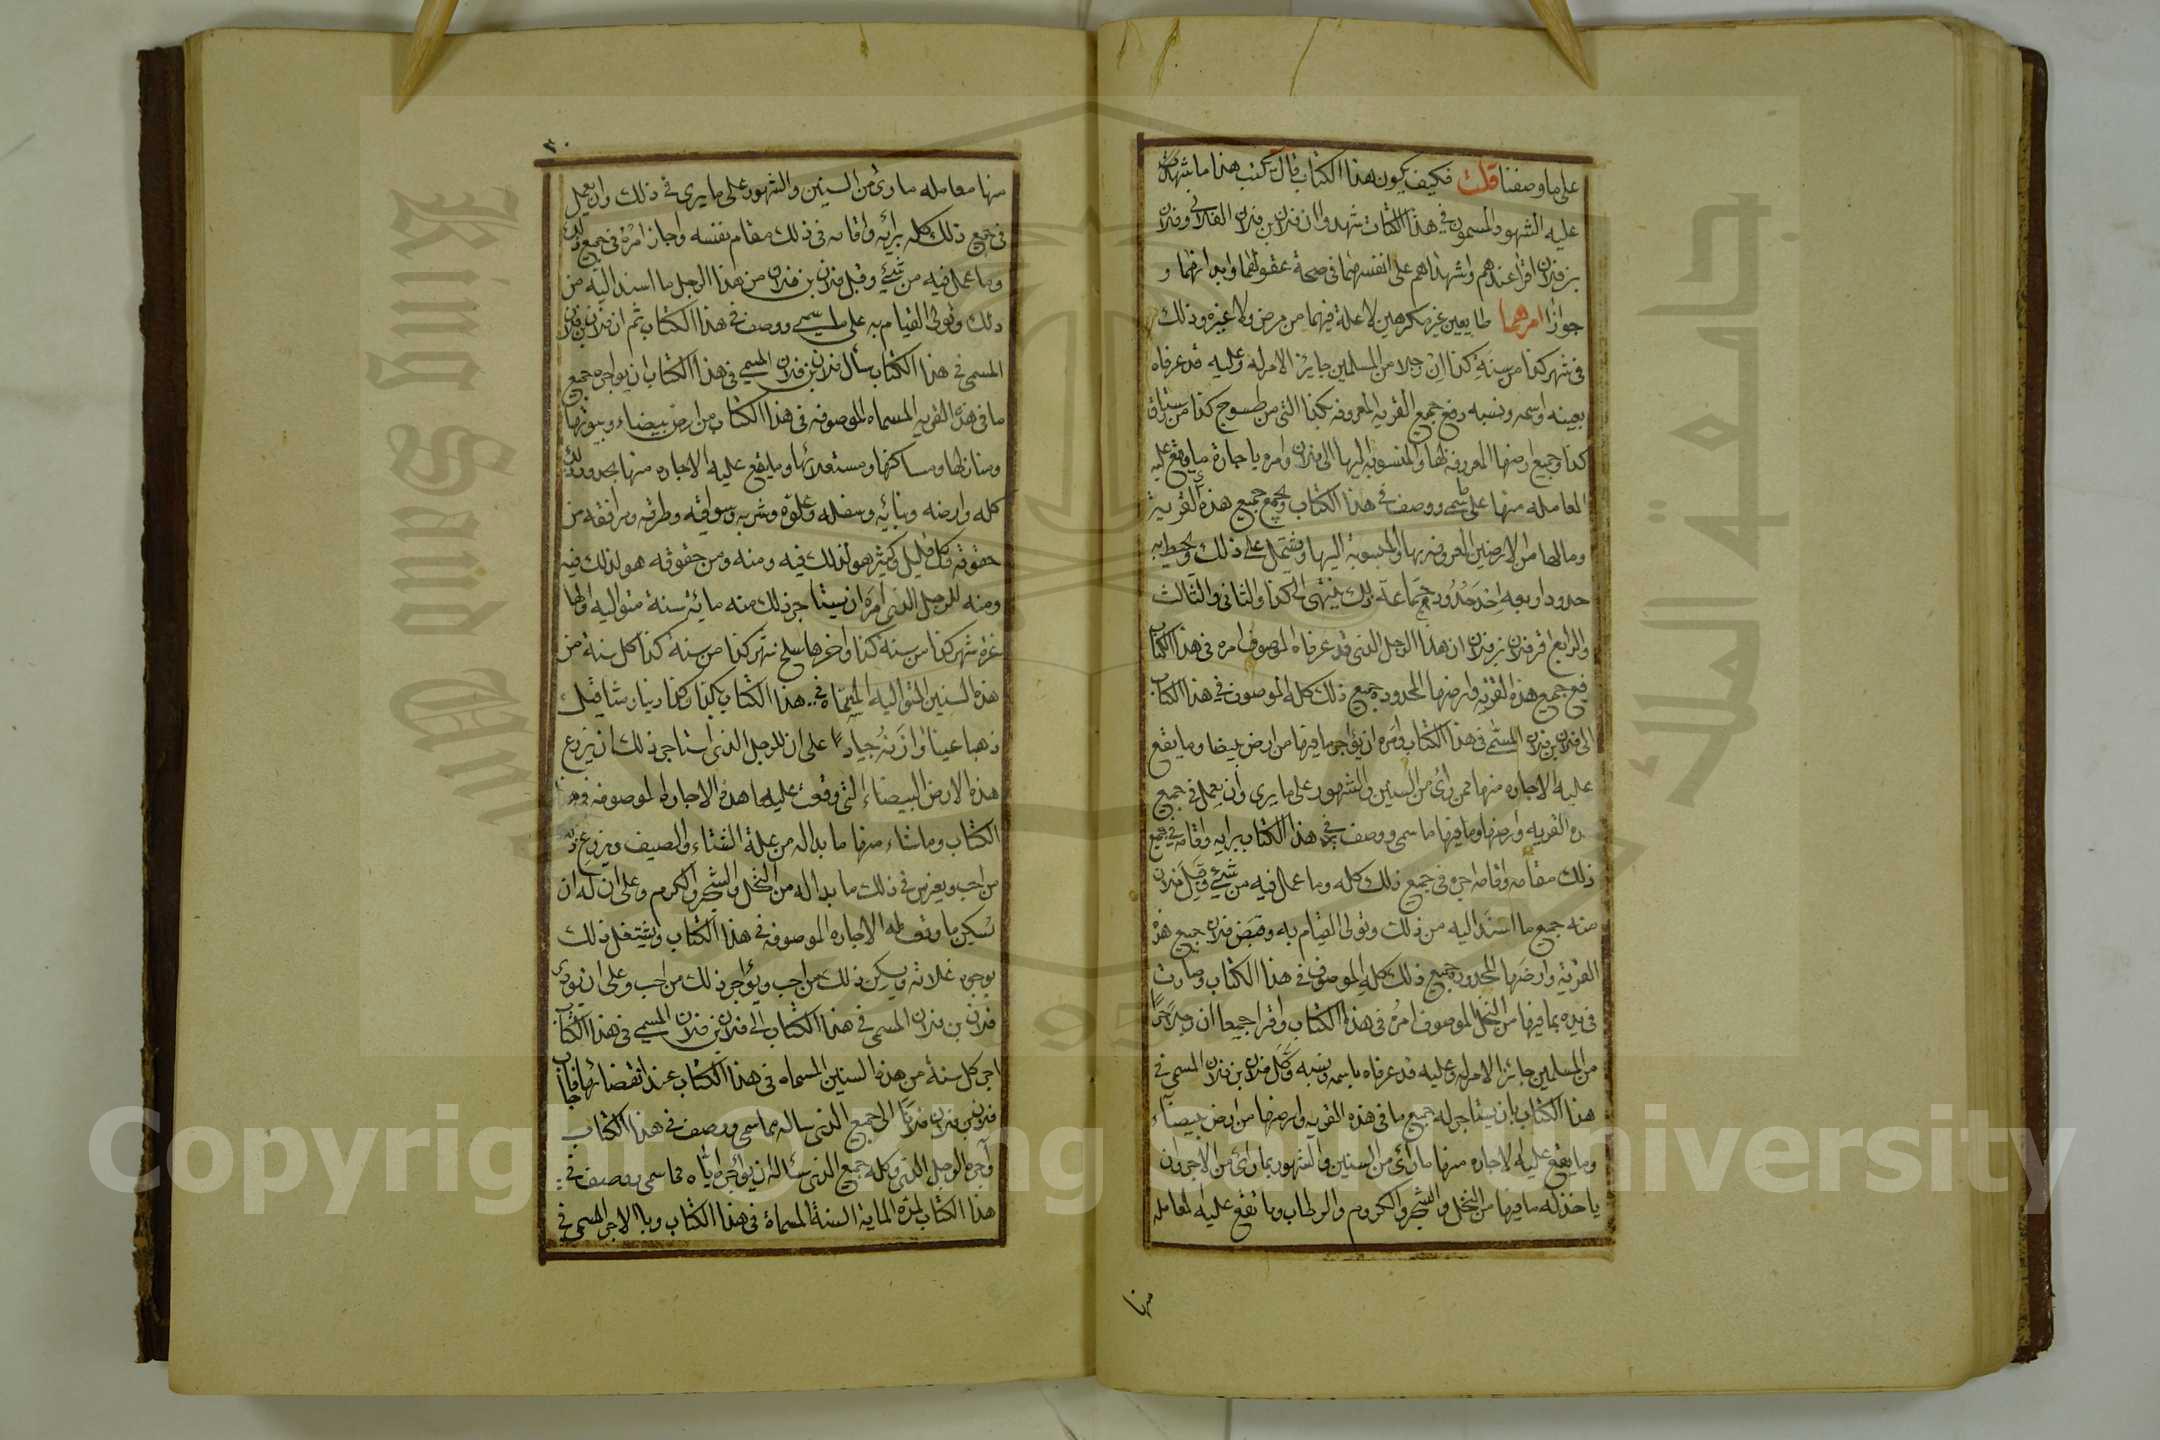 على ما وصفنا قلت فكيف يكون هذا الكتاب قال تكتب هذا ما شهدت
عليه الشهود المسمون في هذا الكتاب شهدوا ان فلان بن فلان الفلاني وفلان
بن فلان اقرا عندهم واشهداهم على انفسهما في صحة عقولهما وابدانهما و
جواز امرهما طايعين غير مكرهين لا علة فيهما من مرض ولا غيره وذلك
في شهر كذا من سنة كذا ان رجلا من المسلمين جايز الامر له وعليه قد عرفاه
بعينه واسمه ونسبه دفع جميع القريه المعروفه بكذا التى من طسوج كذا من رستاق
كذا وجميع ارضها المعروفة لها والمنسوبة اليها الى فلان وامره باجارة ما يقع عليه
المعامله منها على ما سمى ووصف في هذا الكتاب ويجمع جميع هذه القرية
وما لها من الارضين المعروفه بها والمنسوبة اليها ويشتمل على ذلك ويحيط به
حدود اربعه احد حدود جماعة ذلك ينتهى الى كذا والثاني والثالث
والرابع اقر فلان بن فلان ان هذا الرجل الذى قد عرفاه الموصوف امره في هذا الكتاب
دفع جميع هذه القريه وارضها المحدوده جميع ذلك كله الموصوف في هذا الكتاب
الى فلان بن فلان المسمى في هذا الكتاب وامره ان يؤاجر ما فيها من ارض بيضا وما يقع
عليه الاجاره منها ممن رأى من السنين والشهور على ما يرى وان يعمل في جميع
هذه القريه وارضها وما فيها ما سمى ووصف في هذا الكتاب برايه واقامه في جميع
ذلك مقامه واقامه اجره في جميع ذلك كله وما عمل فيه من شئ وقبل فلان
منه جميع ما اسند اليه من ذلك وتولى القيام به وقبض فلان جميع هذه
القرية وارضها المحدوده جميع ذلك كله الموصوف في هذا الكتاب وصارت
في يده بما فيها من النخل الموصوف امره في هذا الكتاب واقرا جميعا ان رجلا حرا
من المسلمين جائز الامر له وعليه قد عرفاه باسمه ونسبه وكل فلان بن فلان المسمى في
هذا الكتاب بان يستاجر له جميع ما في هذه القريه وارضها من ارض بيضاء
وما يقع عليه الاجاره منها ما رأى من السنين والشهور بما رأى من الاجر وان
ياخذ له ما فيها من النخل والشجر والكروم والرطاب وما تقع عليه المعامله
منها
٣٠
منها معامله ما رئ من السنين والشهور على ما يرى في ذلك وان يعمل
في جميع ذلك كله برأيه واقامه في ذلك مقام نفسه واجاز امره في جميع ذلك
وما عمل فيه من شئ وقبل فلان بن فلان من هذا الرجل ما اسند اليه من
ذلك وتولى القيام به على ما سمى ووصف في هذا الكتاب ثم ان فلان بن فلان
المسمى في هذا الكتاب سأل فلان بن فلان المسمى في هذا الكتاب ان يواجره جميع
ما في هذه القريه المسماه الموصوفه في هذا الكتاب من ارض بيضاء وبيوتها
ومنازلها ومساكنها ومستغلاتها وما يقع عليه الاجاره منها بحدود ذلك
كله وارضه وبنائه وسفله وعلوه وشربه وسواقيه وطرقه ومرافقه من
حقوقه وكل قليل وكثير هو لذلك فيه ومنه ومن حقوقه هو لذلك فيه
ومنه للرجل الذى امره ان يستاجر ذلك منه مائة سنة متواليه اولها
غره شهر كذا من سنة كذا واخرها سلخ شهر كذا من سنة كذا كل سنة من
هذه السنين المتواليه المسماة في هذا الكتاب بكذا وكذا دينارا مثاقيل
ذهبا عينا وازنة جيادا على ان للرجل الذى استاجر ذلك ان يزرع
هذه الارض البيضاء التى وقعت عليها هذه الاجاره الموصوفه في هذا
الكتاب وما شاء منها ما بدا له من غلة الشتاء والصيف ويزرع ذلك
من احب ويغرس في ذلك ما بدا له من النخل والشجر والكروم وعلى ان له ان
يسكن ما وقع له الاجاره الموصوفه في هذا الكتاب ويستغل ذلك
بوجوه غلاته ويسكن ذلك من احب ويؤاجر ذلك من احب وعلى ان يؤدى
فلان بن فلان المسمى في هذا الكتاب الى فلان بن فلان المسمى في هذا الكتاب
اجر كل سنة من هذه السنين المسماه في هذا الكتاب عند انقضائها فاجاب
فلان بن فلان فلانا الى جميع الذى ساله مما سمى ووصف في هذا الكتاب
وآجره الرجل الذى وكله جميع الذى سئاله ان يواجره اياه مما سمى ووصف في
هذا الكتاب لمدة الماية السنة المسماة في هذا الكتاب وبالاجر المسمى في